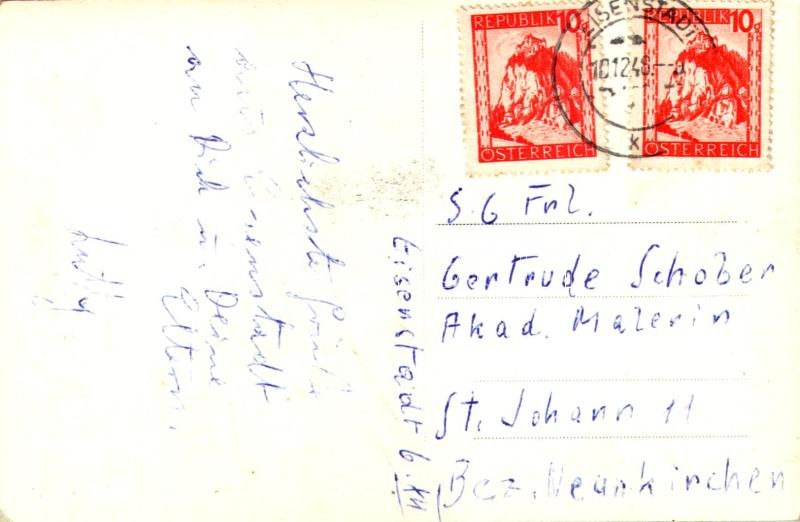 Herzlichste Grüße
aus Eisenstadt
an Dich u. Deine
Eltern.
Eisenstadt 6. XII
REPUBLIK 10g
ÖSTERREICH
REPUBLIK 10g
ÖSTERREICH
EISENSTADT
10.12.46.
k
S. G Frl.
Gertrude Schober
Akad. Malerin
St. Johann 11
Bez. Neunkirchen